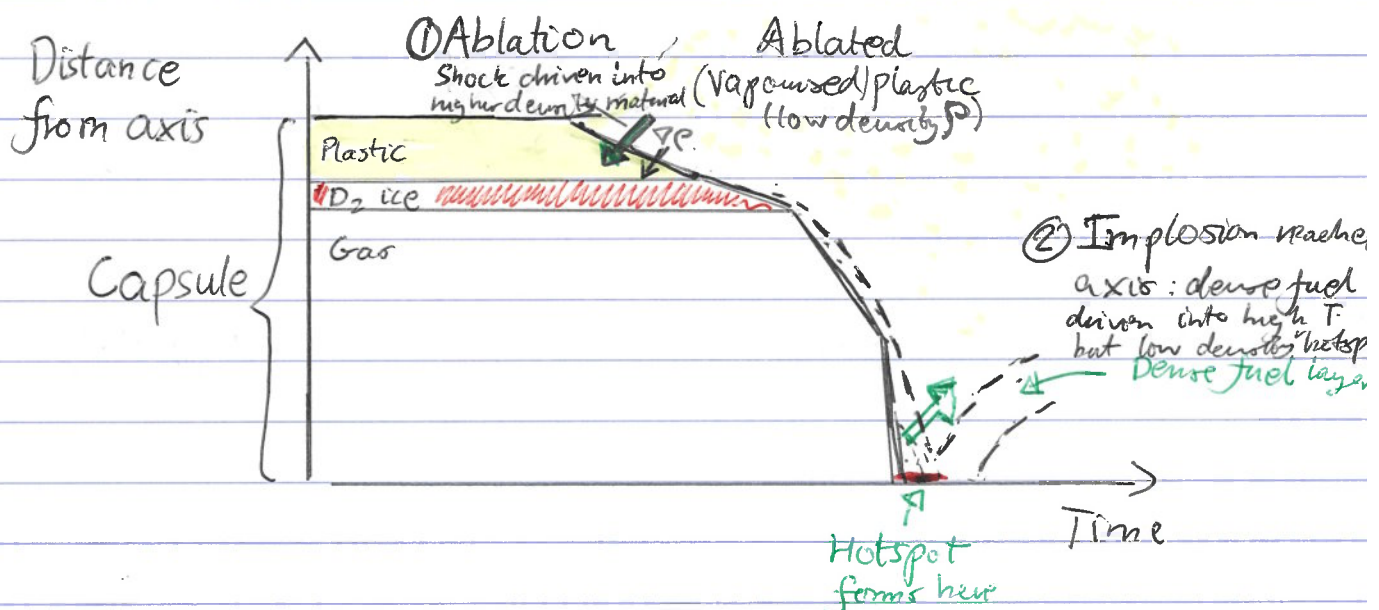 Distance
from axis
① Ablation
Shock driven into
higher density material
Ablated
(Vapourised) plastic
(low density ρ)
∇ρ.
Plastic
D₂ ice
Gas
Capsule
② Implosion reache
axis: dense fuel
driven into high T
but low density "hotsp
Dense fuel laye
Time
Hotspot
forms here